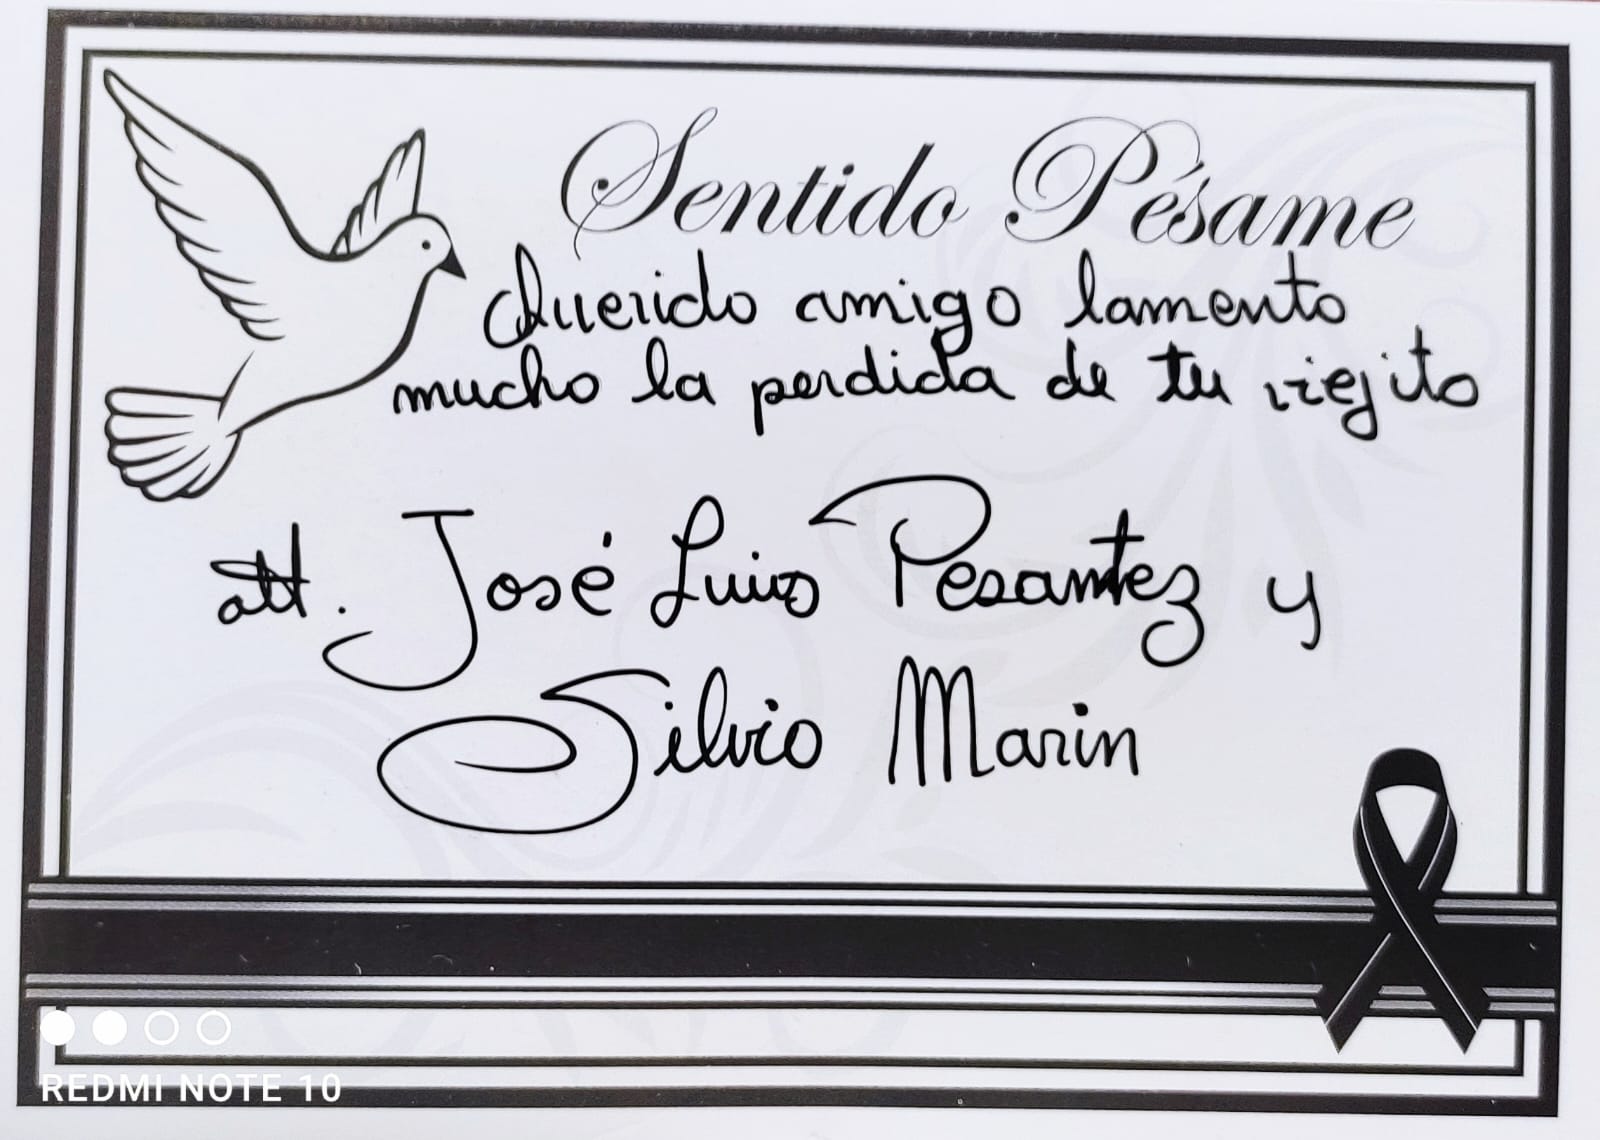 Sentido Pésame
Querido amigo lamento
mucho la perdida de tu viejito
att. José Luis Pesantez y
Silvio Marin
REDMI NOTE 10